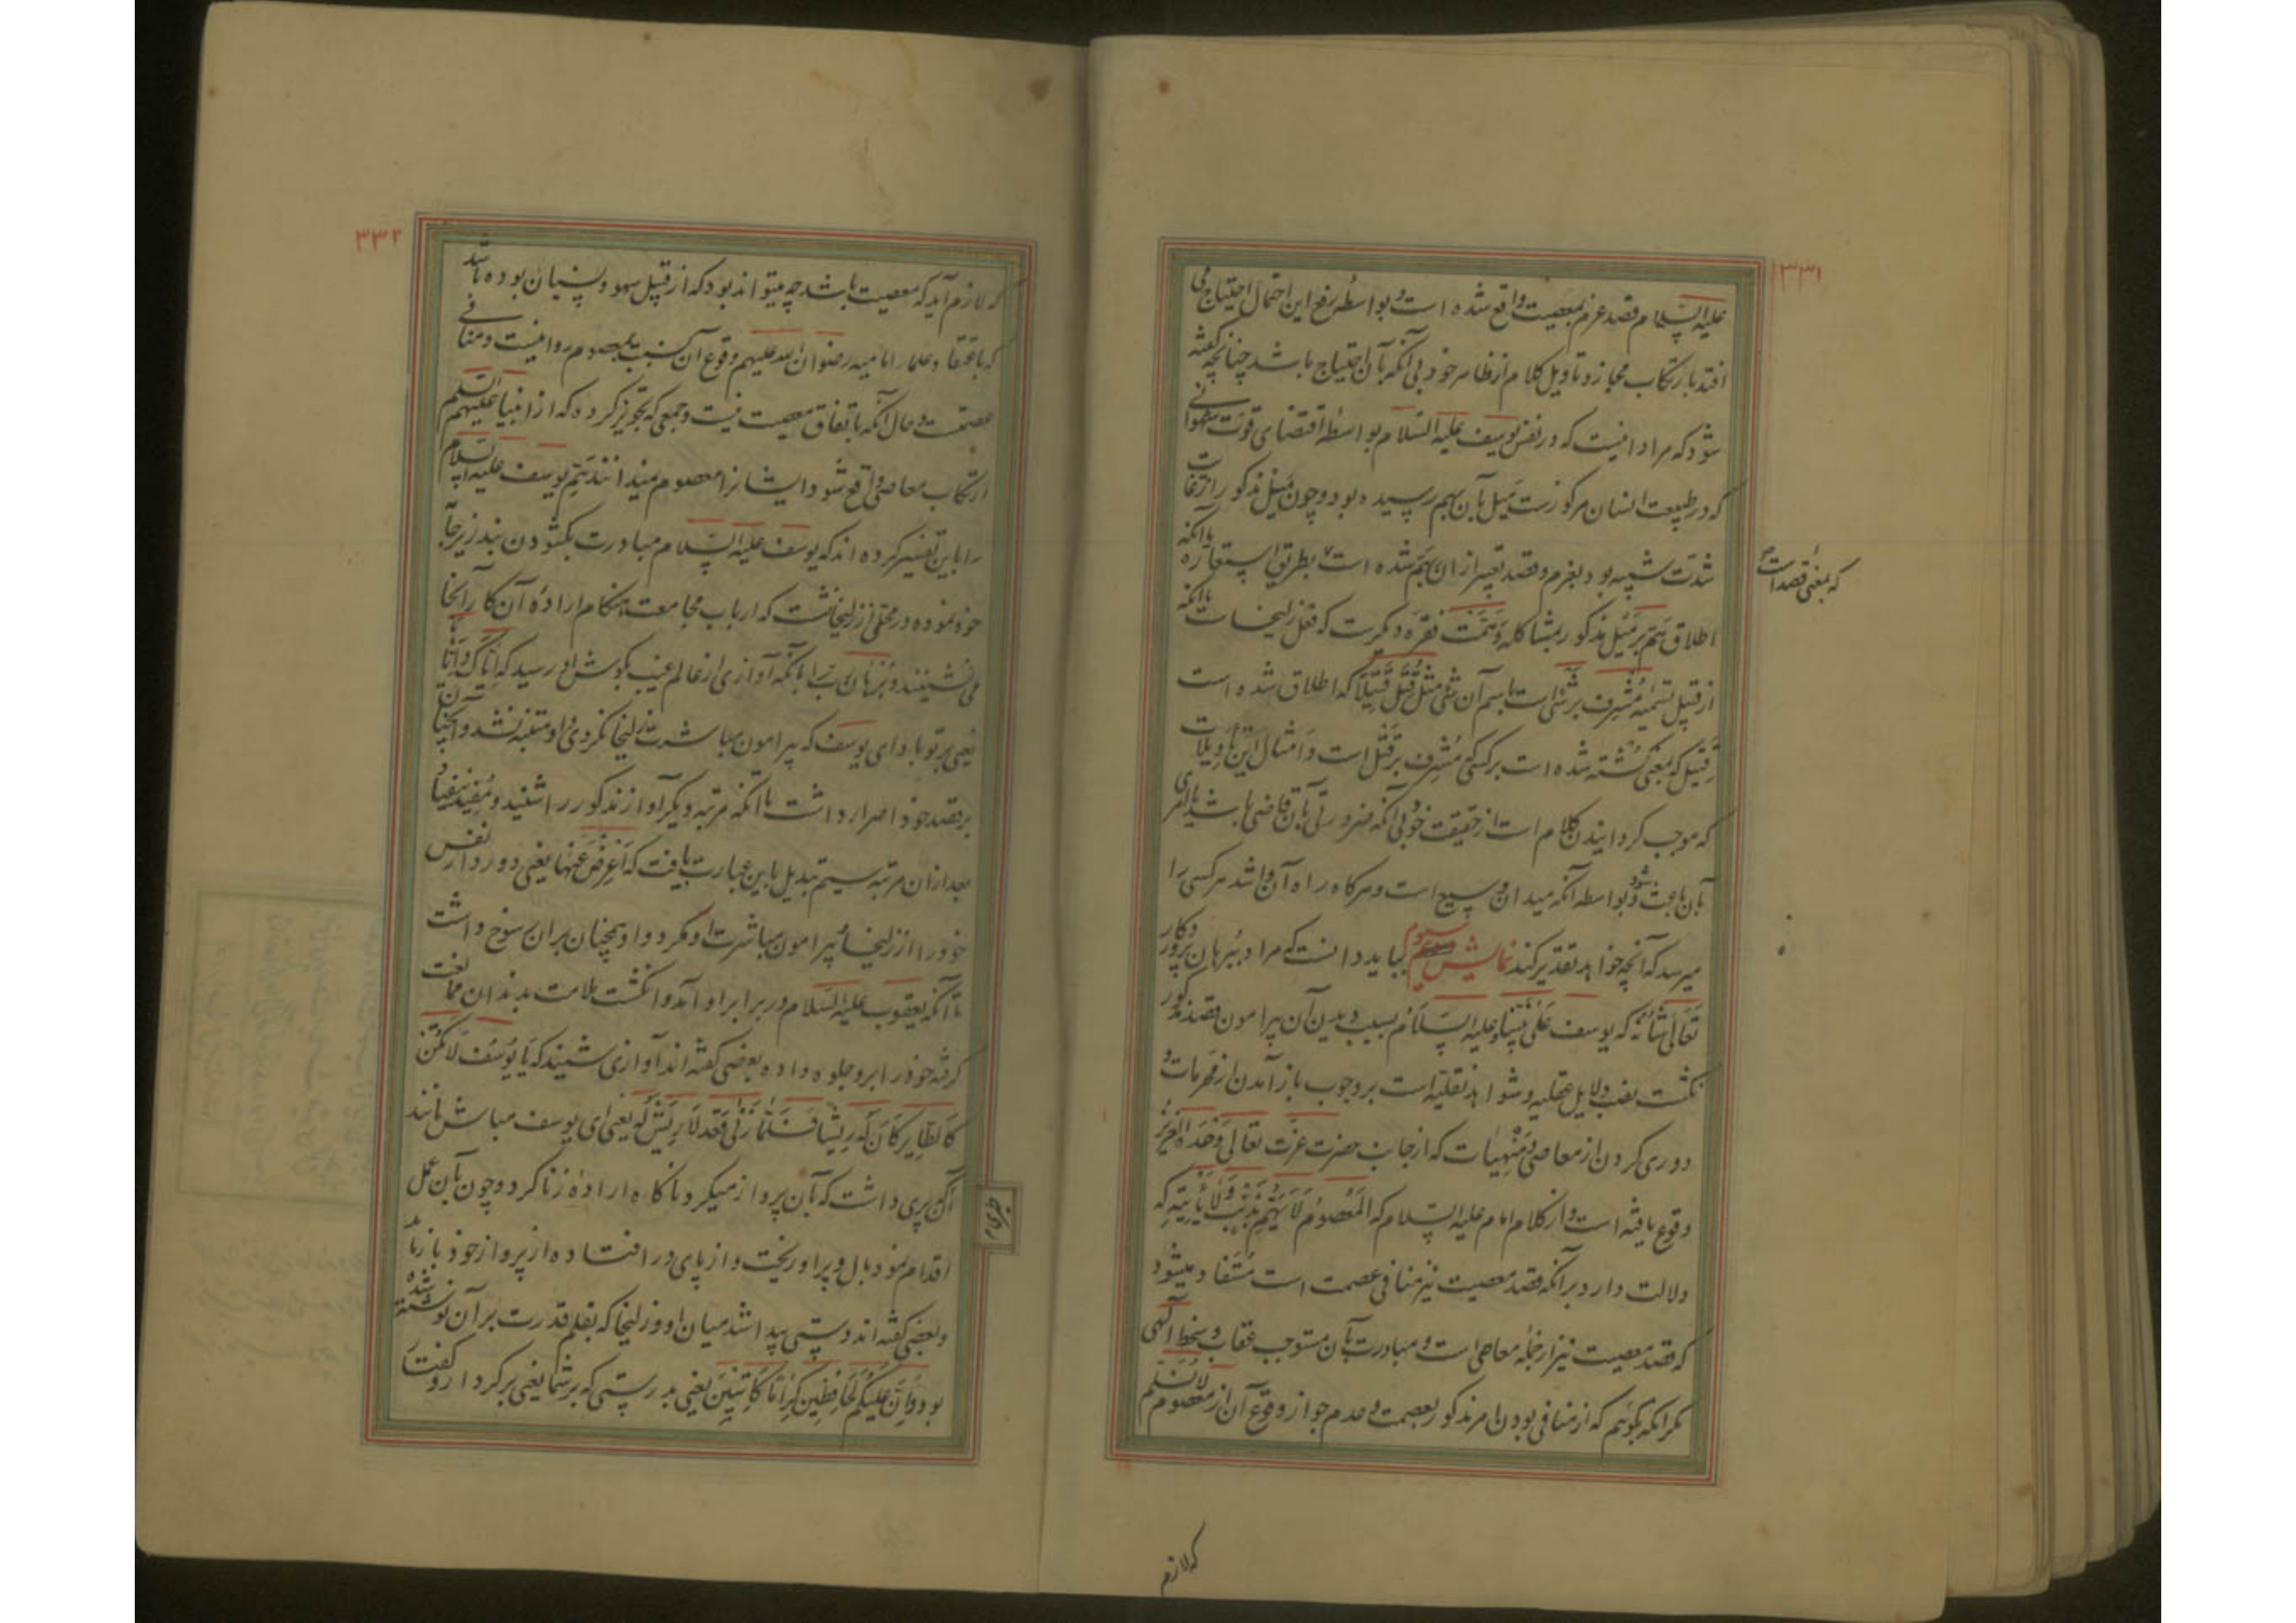 ۳۳۱
علیه السلام قصد عزم بمعصیت واقع شده است و بواسطه رفع این احتمال احتیاج می
افتد بارتکاب مجاز و تاویل کلام از ظاهر خود بی آنکه بآن احتیاج باشد چنانچه گفته
شود که مراد اینست که در نفس یوسف علیه السلام بواسطه اقتضای قوت شهوانی
که در طبیعت انسان مرکوزست میل بآن بهم رسیده بود و چون میل مذکور از غایت
شدت شبیه بود بعزم و قصد تعبیر از ان بهم شده است بطریق استعاره یا آنکه
که بمعنی قصد است
اطلاق هم بر میل مذکور بمشاکله وهمت فقره دیگرست که فعل زلیخاست یا آنکه
از قبیل تسمیه مشرف بر شئ است باسم آن شئ مثل قتل قتیلا که اطلاق شده است
قتیل که بمعنی کشته شده است بر کسی مشرف بر قتل است و امثال این تاویلات
که موجب گردانیدن کلام است از حقیقت خود بی آنکه ضرورتی بآن قاضی باشد یا امری
بآن باعث شود و بواسطه آنکه میدان وسیع است و هرگاه راه آن وا شد هر کسی را
میرسد که آنچه خواهد تقدیر کند نمایش سیوم بباید دانست که مراد ببرهان پروردکار
تعالی شانه که یوسف علی نبینا و علیه السلام بسبب دیدن آن پیرامون قصد مذکور
نکشت نصب دلایل عقلیه و شواهد نقلیه است بر وجوب باز آمدن از محرمات و
دوری کردن از معاصی و منهیات که از جانب حضرت عزت تعالی وحده العزیز
وقوع یافته است و از کلام امام علیه السلام که المعصوم لا یهم بذنب ولا یاتیه که
دلالت دارد بر آنکه قصد معصیت نیز منافی عصمت است مستفاد میشود
که قصد معصیت نیز از جمله معاصی است و مبادرت بآن مستوجب عقاب و سخط الهی
مکر آنکه بگوئیم که از منافی بودن امر مذکور بعصمت و عدم جواز وقوع آن از معصوم لا نسلم
که لازم
۳۳۲
که لازم آید که معصیت باشد چه میتواند بود که از قبیل سهو و نسیان بوده باشد
که باعتقاد علماء امامیه رضوان الله علیهم وقوع آن نسبت بمعصوم روا نیست و منافی
عصمتست و حال آنکه باتفاق معصیت نیست و جمعی که تجویز کرده که از انبیا علیهم السلام
ارتکاب معاصی واقع شود و ایشانرا معصوم نمیدانند هم یوسف علیه السلام
را باین تفسیر کرده اند که یوسف علیه السلام مبادرت بکشودن بند زیر جامه
خود نموده در محلی از زلیخا نشست که ارباب مجامعت هنکام اراده آن کار آنجا
می نشینند و برهان رب را بآنکه آوازی از عالم غیب بگوش او رسید که ایاک وایاها
یعنی بر تو باد ای یوسف که پیرامون مباشرت زلیخا نکردی او متنبه نشد و همچنان
بر قصد خود اصرار داشت تا آنکه مرتبه دیکر آواز مذکور را شنید و مفید نیفتاد
بعد از ان مرتبه سیم تبدیل باین عبارت یافت که اعرض عنها یعنی دور دار نفس
خود را از زلیخا و پیرامون مباشرت او مکرد و او همچنان بر ان رسوخ داشت
تا آنکه یعقوب علیه السلام در برابر او آمد و انکشت ملامت بدندان ممانعت
کرفته خود را برو جلوه داده بعضی کفته اند آوازی شنید که یا یوسف لا تکن
کالطایر کان له ریشا فلما زنی قعد لا ریش له یعنی ای یوسف مباش مانند
آنکه پری داشت که بآن پرواز میکرد و ناکاه اراده زنا کرد و چون بآن عمل
اقدام نمود بال و پر او ریخت و از پای در افتاده از پرواز خود باز ماند
و بعضی کفته اند دستی پیدا شد میان او و زلیخا که بقلم قدرت بر آن نوشته شده
بود و ان علیکم لحافظین کراما کاتبین یعنی بدرستی که بر شما یعنی بر کردار و کفت